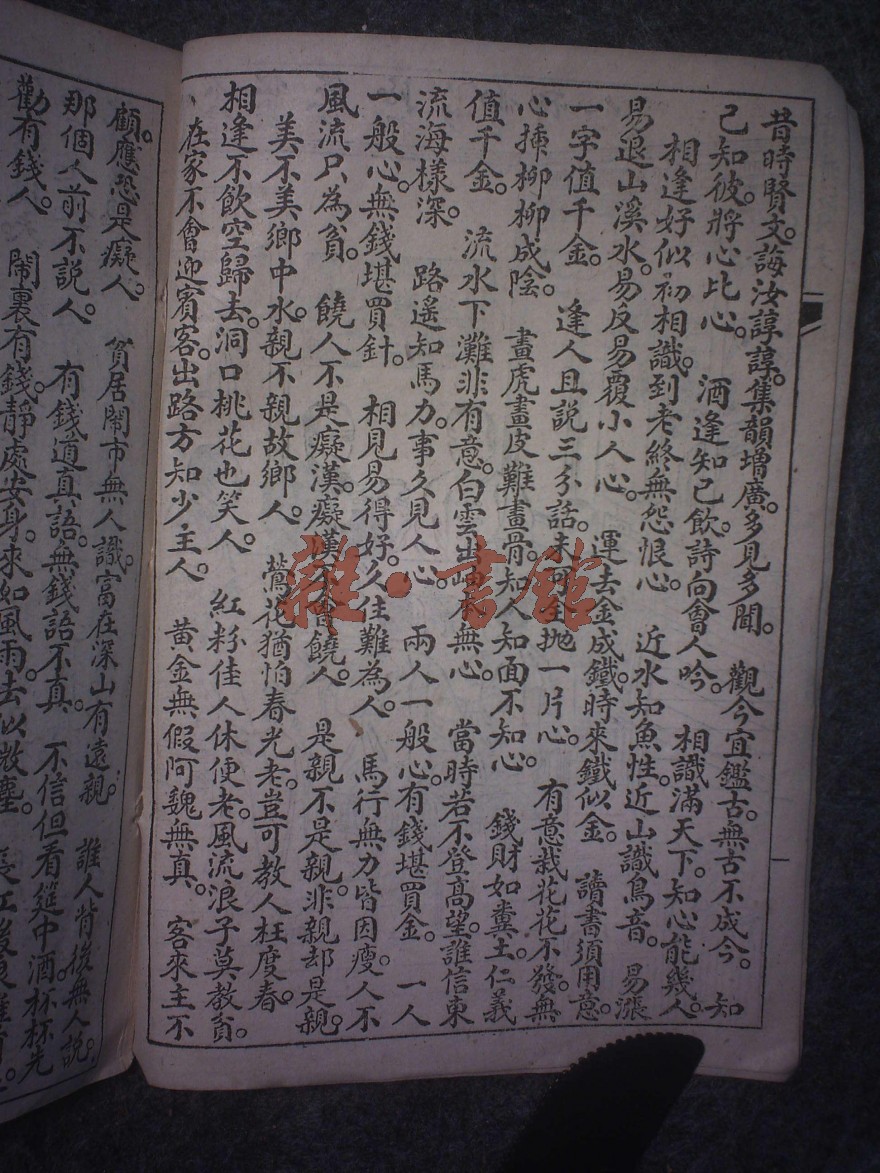 昔時賢文。誨汝諄諄。集韻增廣。多見多聞。 觀今宜鑑古。無古不成今。 知
己知彼。將心比心。 酒逢知己飲。詩向會人吟。 相識滿天下。知心能幾人。
相逢好似初相識。到老終無怨恨心。 近水知魚性。近山識鳥音。 易漲
易退山溪水。易反易覆小人心。 運去金成鐵。時來鐵似金。 讀書須用意。
一字值千金。 逢人且說三分話。未可全拋一片心。 有意栽花花不發。無
心揷柳柳成陰。 畫虎畫皮難畫骨。知人知面不知心。 錢財如糞土。仁義
值千金。 流水下灘非有意。白雲出岫本無心。 當時若不登高望。誰信東
流海樣深。 路遥知馬力。事久見人心。 兩人一般心。有錢堪買金。 一人
一般心。無錢堪買針。 相見易得好。久住難為人。 馬行無力皆因瘦。人不
風流只為貧。 饒人不是癡漢。癡漢不會饒人。 是親不是親。非親却是親。
美不美鄉中水。親不親故鄉人。 鶯花猶怕春光老。豈可教人枉度春。
相逢不飲空歸去。洞口桃花也笑人。 紅粉佳人休便老。風流浪子莫教貧。
在家不會迎賓客。出路方知少主人。 黃金無假。阿魏無真。 客來主不
顧。應恐是癡人。 貧居鬧市無人識。富在深山有遠親。 誰人背後無人說。
那個人前不說人。 有錢道真語。無錢語不真。 不信但看筵中酒。杯杯先
勸有錢人。 鬧裏有錢。靜處安身。來如風雨。去似微塵。
雜·書館